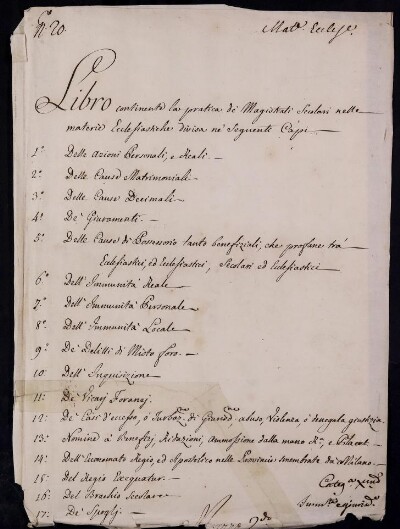 N.º 20.
Mat.e Eccles.e
Libro continente la pratica de Magistrati Secolari nelle
materie Ecclesiastiche divisa ne' Seguenti Capi
1.º Delle azioni Personali, e Reali.
2.º Delle Cause Matrimoniali
3.º Delle Cause Decimali
4.º De' Giuramenti.
5.º Delle Cause di Possessorio tanto benefiziali, che profane trà
Ecclesiastici, ed Ecclesiastici, Secolari ed Ecclesiastici
6.º Dell' Immunità Reale
7.º Dell' Immunità Personale
8.º Dell' Immunità Locale
9.º De' Delitti di Misto foro.
10.º Dell' Inquisizione
11.º De' Vicarj Foranej.
12.º De' Casi d'eccesso, ò turbaz.ne di abuso, Violenza ò denegata giustizia.
13.º Nomine à Beneficj
14.º Dell' Economato Regio, ed Apostolico nelle Provincie smembrate da Milano
15.º Del Regio Exequatur.
16.º Del Brachio Secolare
17.º De' Spoglj.